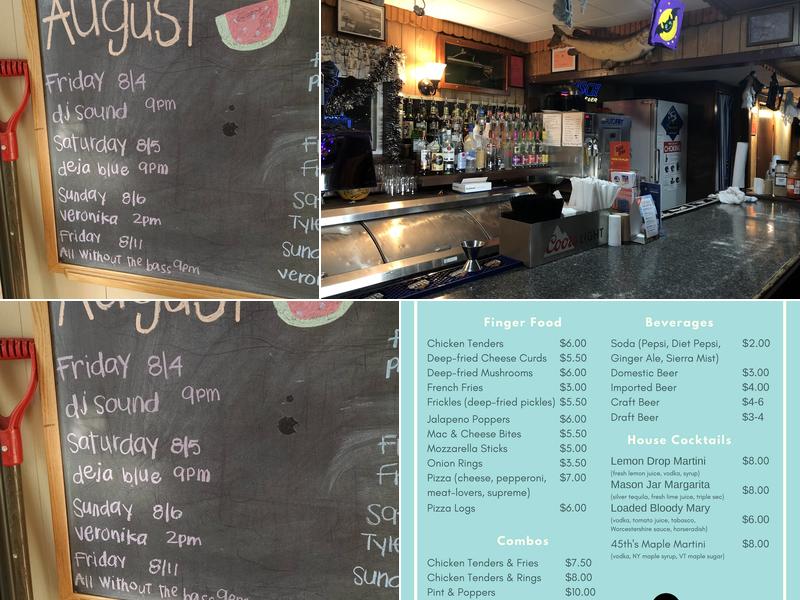 August
Friday 8/4
dj sound 9pm
Saturday 8/5
deja blue 9pm
Sunday 8/6
veronika 2pm
Friday 8/11
All Without the bass 9pm
Fr
Sa
Tyle
Sund
vero
Coors LIGHT
August
Friday 8/4
dj sound 9pm
Saturday 8/5
deja blue 9pm
Sunday 8/6
veronika 2pm
Friday 8/11
All Without the bass 9pm
Fr
Sa
Tyle
Sund
Finger Food
Chicken Tenders $6.00
Deep-fried Cheese Curds $5.50
Deep-fried Mushrooms $6.00
French Fries $3.00
Frickles (deep-fried pickles) $5.50
Jalapeno Poppers $6.00
Mac & Cheese Bites $5.50
Mozzarella Sticks $5.00
Onion Rings $3.50
Pizza (cheese, pepperoni, $7.00
meat-lovers, supreme)
Pizza Logs $6.00
Combos
Chicken Tenders & Fries $7.50
Chicken Tenders & Rings $8.00
Pint & Poppers $10.00
Beverages
Soda (Pepsi, Diet Pepsi, $2.00
Ginger Ale, Sierra Mist)
Domestic Beer $3.00
Imported Beer $4.00
Craft Beer $4-6
Draft Beer $3-4
House Cocktails
Lemon Drop Martini $8.00
(fresh lemon juice, vodka, syrup)
Mason Jar Margarita $8.00
(silver tequila, fresh lime juice, triple sec)
Loaded Bloody Mary $6.00
(vodka, tomato juice, tabasco,
Worcestershire sauce, horseradish)
45th's Maple Martini $8.00
(vodka, NY maple syrup, VT maple sugar)